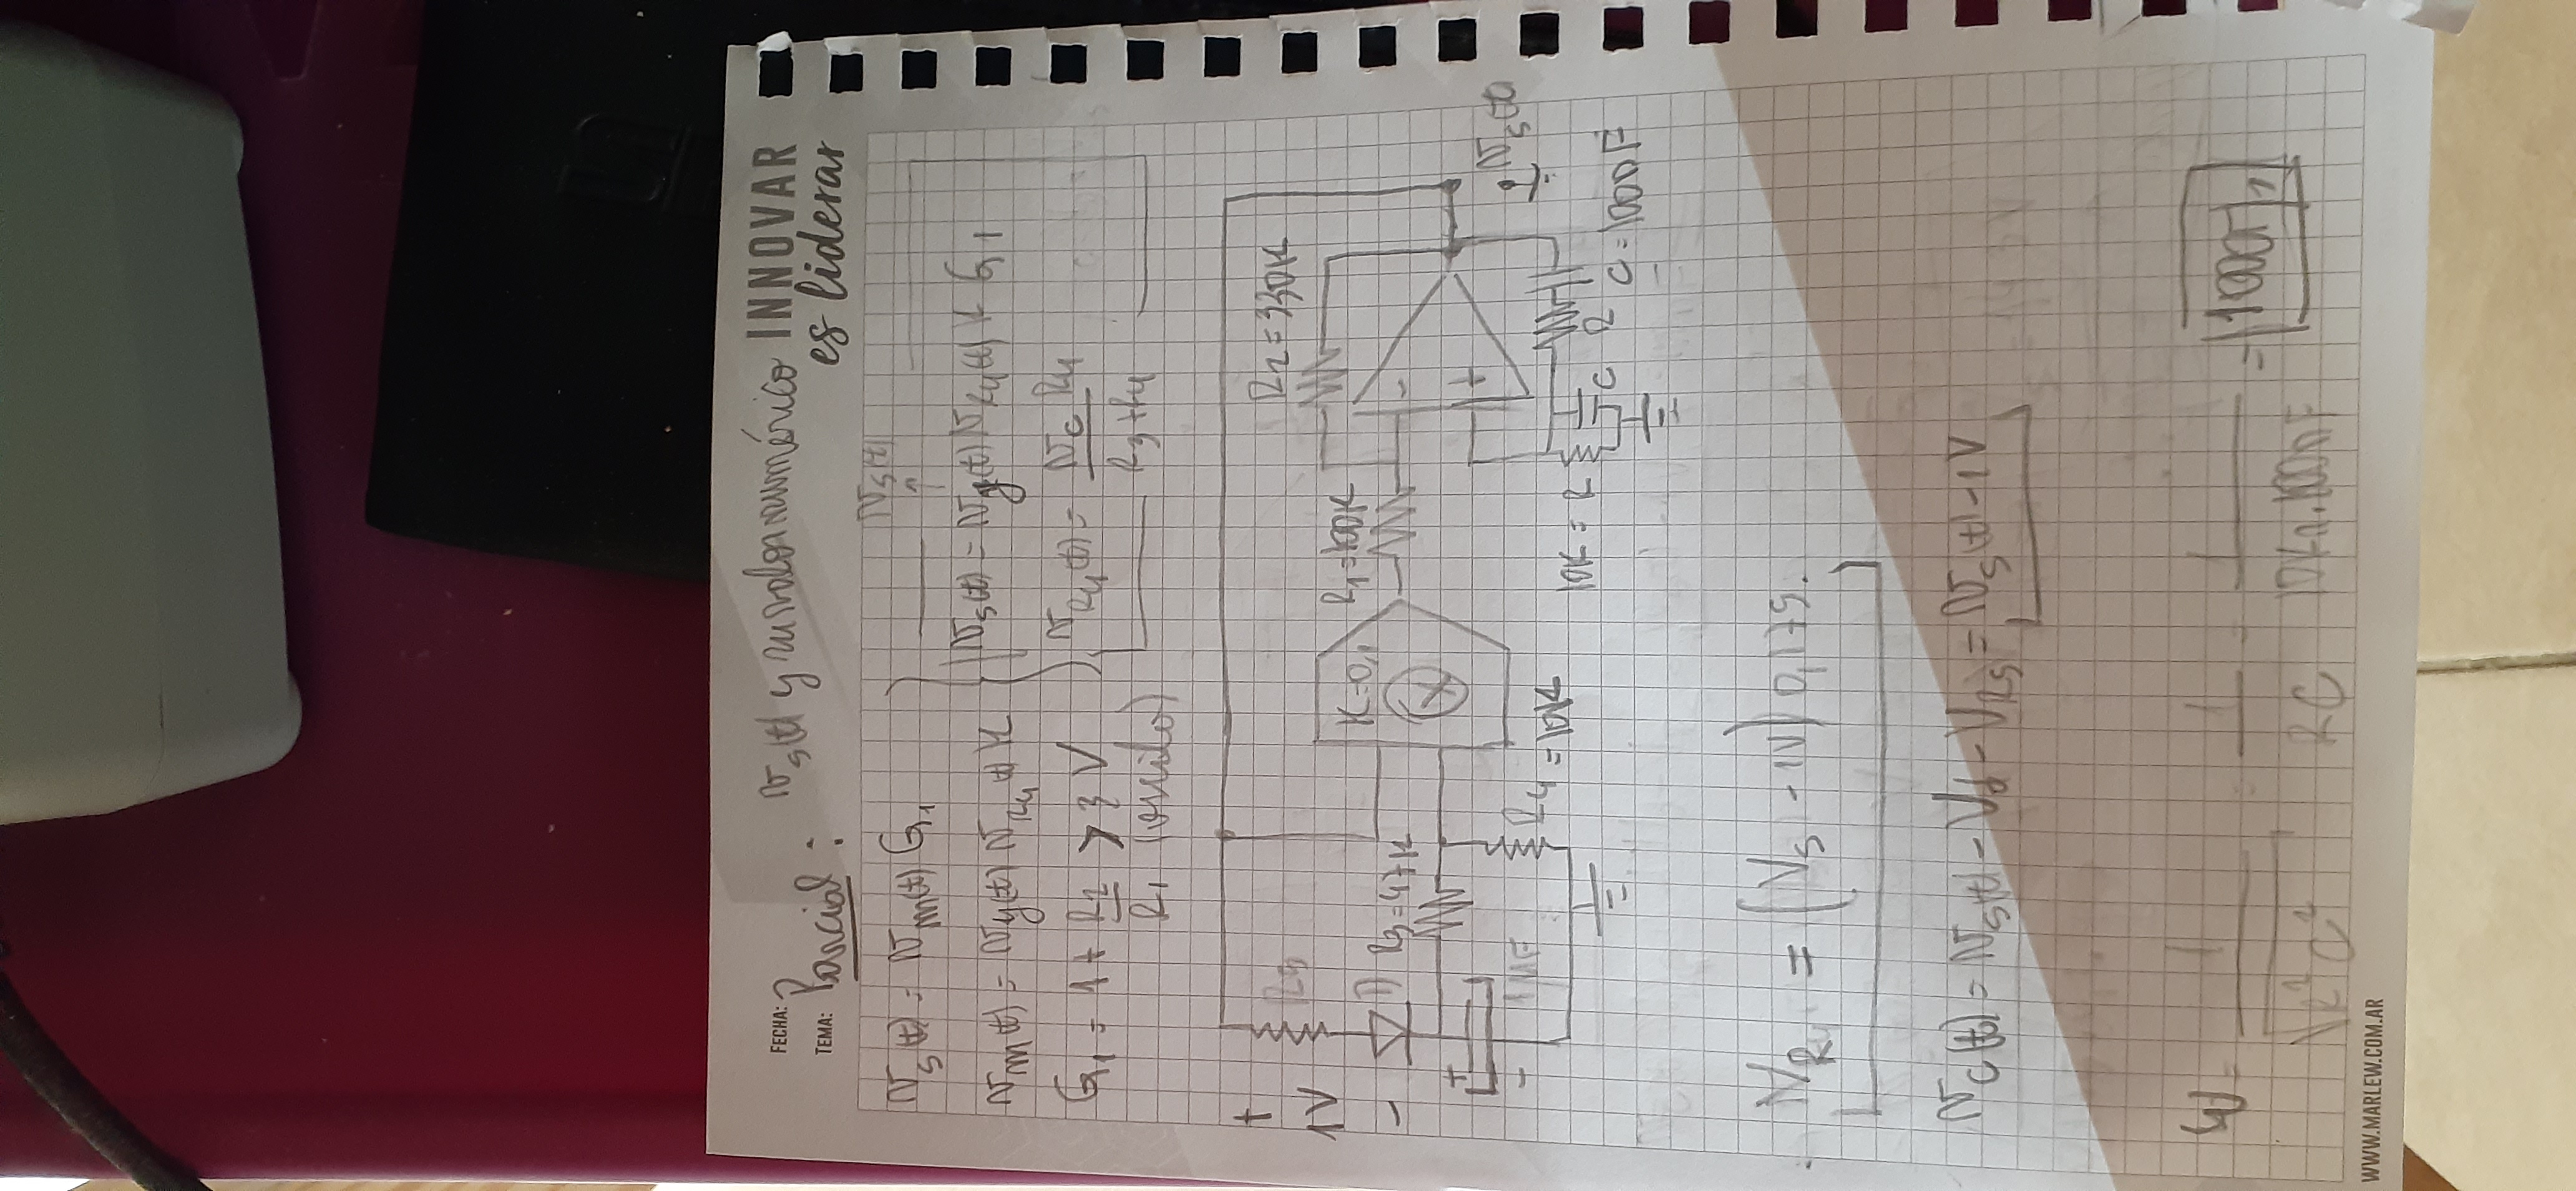 FECHA:
TEMA: Parcial : vs(t) y su valor numérico
INNOVAR
es liderar
vs(t) = vm(t) G1
vm(t) = vy(t) vR4(t) K
G1 = 1 + R2/R1 > 3 V
(oscilo)
vs(t)
↑
vs(t) = vy(t) vR4(t) K G1
vR4(t) = vc R4 / R3+R4
+
1V
-
R5
D
R3=47K
+
-
1µF
R4 = 10K
K=0,1
X
R1=100K
R2=330K
-
+
vs(t)
10K = R
C
R
C=100nF
vR4 = (vs - 1V) 0,175.
vc(t) = vs(t) - Vd - VR5 = vs(t) - 1V
W = 1/√R²C² = 1/RC = 1/10KΩ.100nF = 1000
WWW.MARLEW.COM.AR